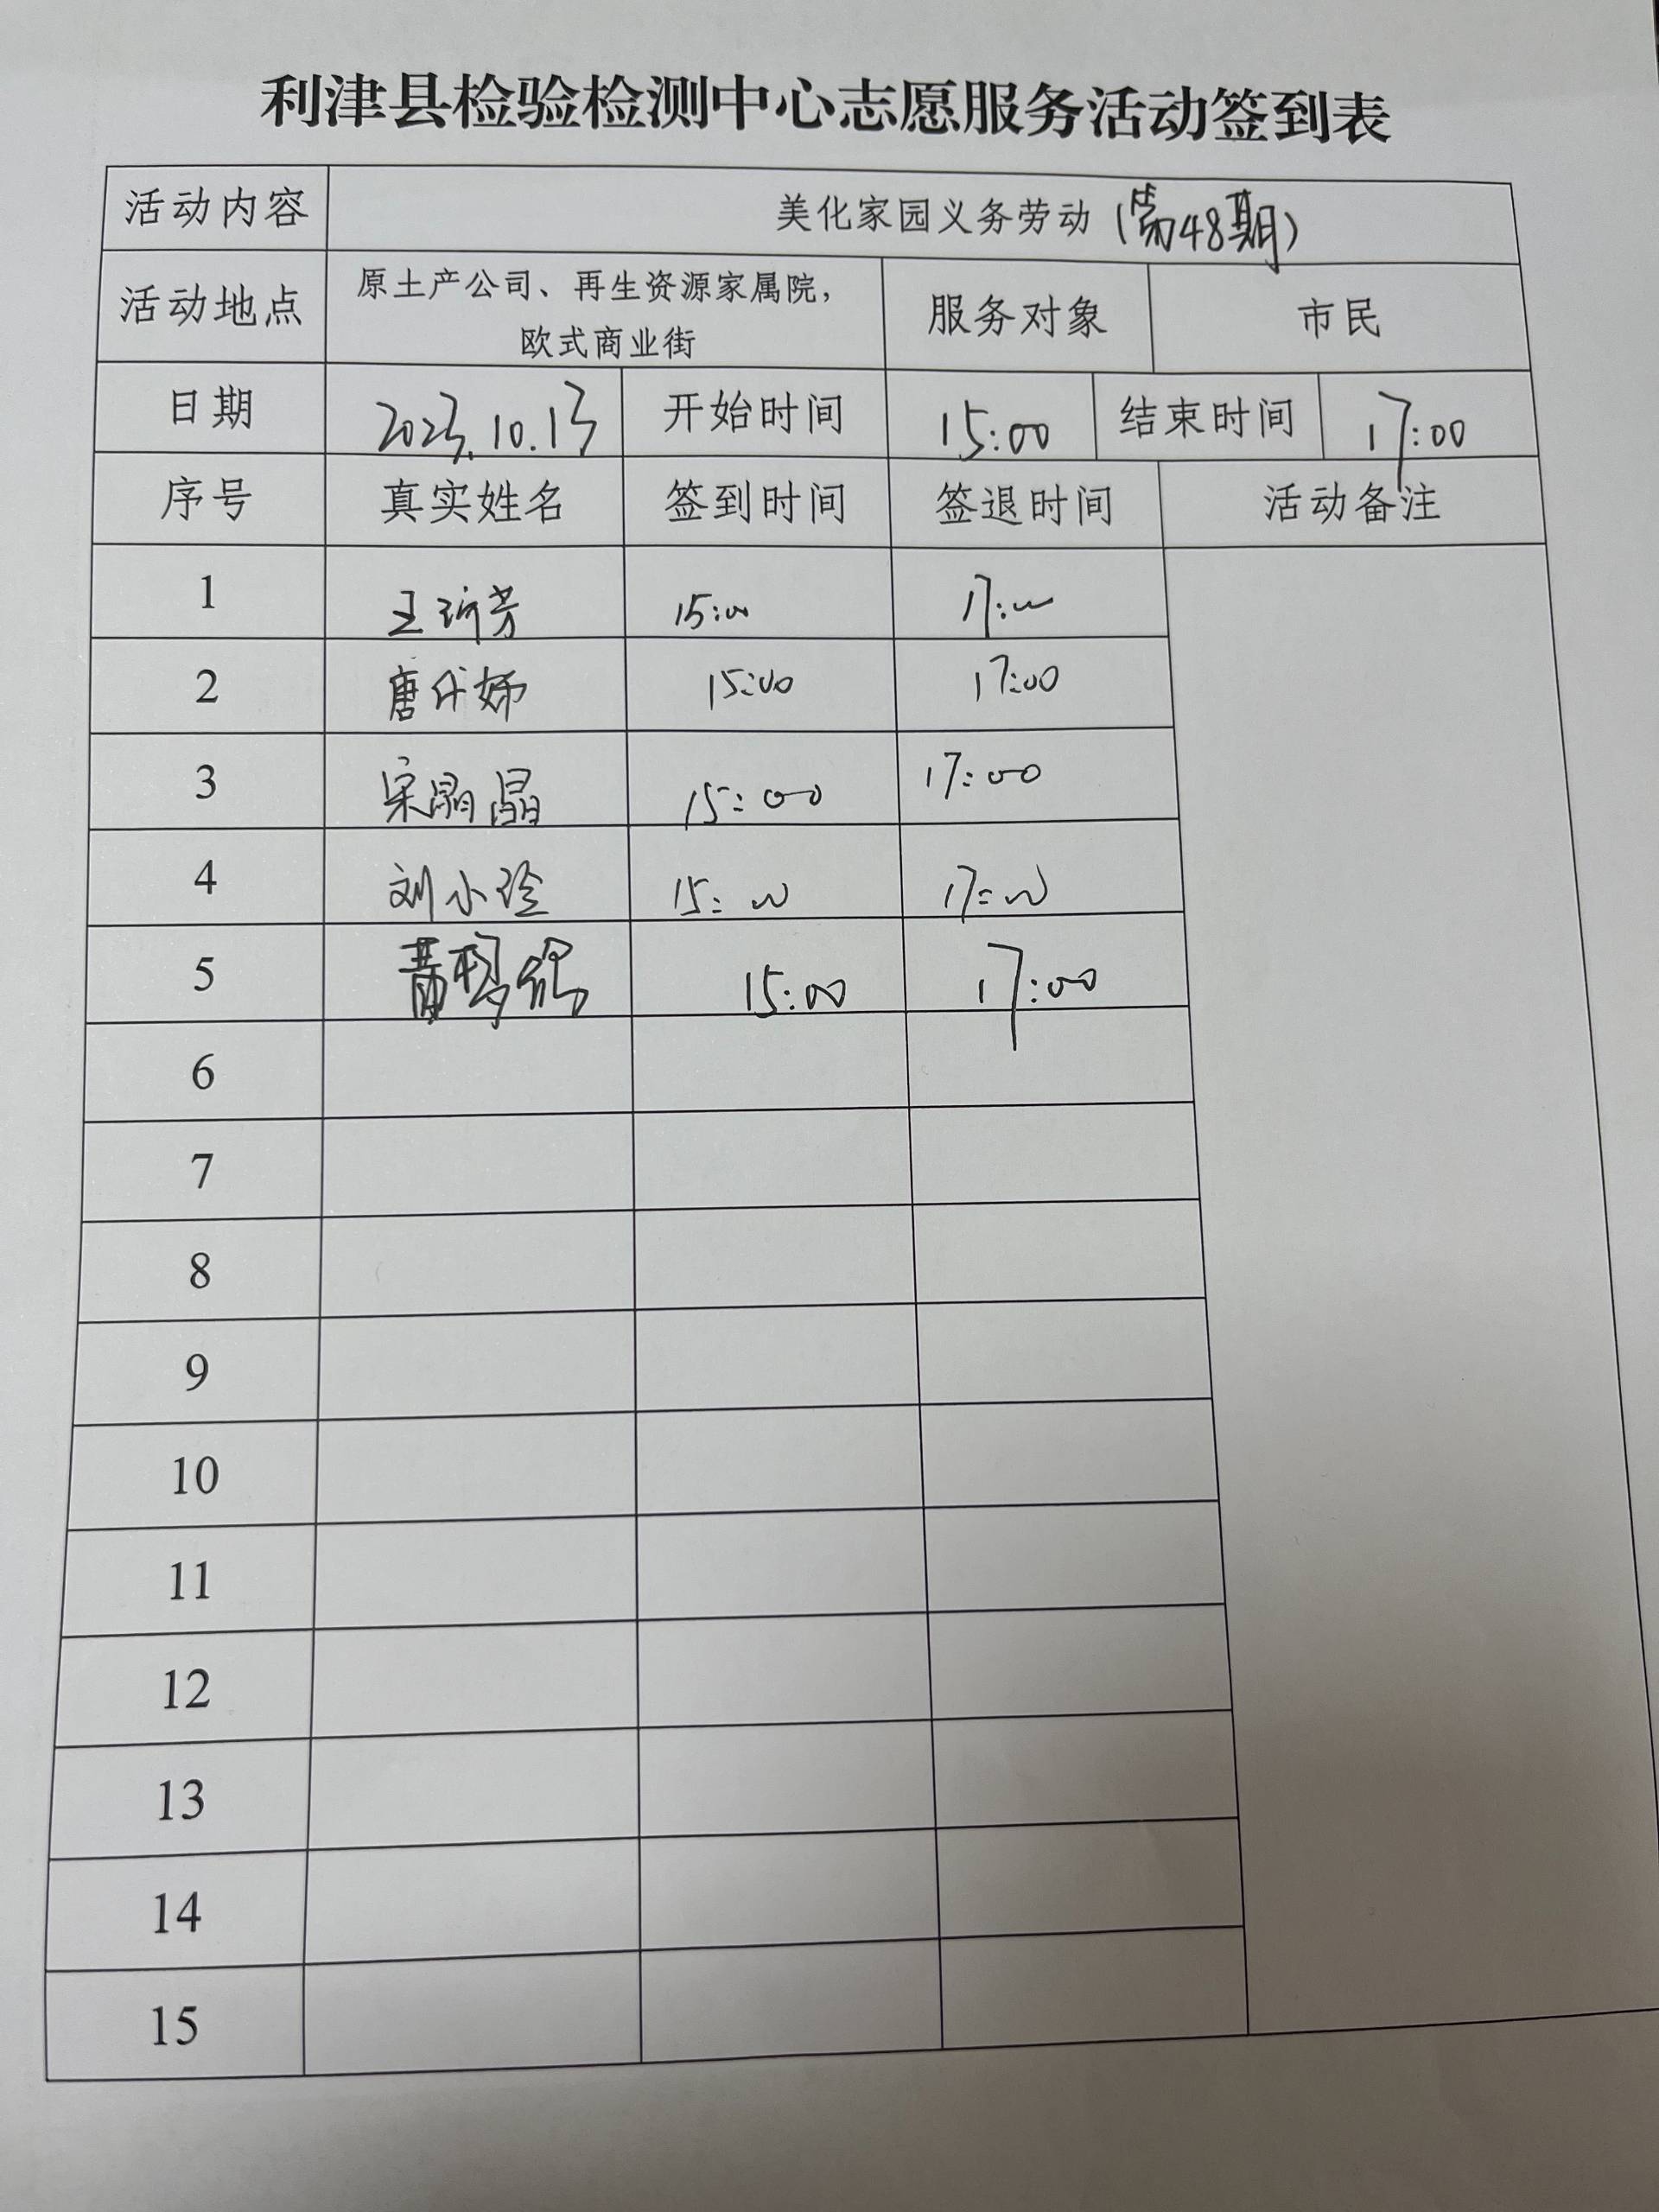 利津县检验检测中心志愿服务活动签到表
活动内容 美化家园义务劳动（第48期）
活动地点 原土产公司、再生资源家属院，
欧式商业街 服务对象 市民
日期 2023.10.13 开始时间 15:00 结束时间 17:00
序号 真实姓名 签到时间 签退时间 活动备注
1 王 芳 15:00 17:00
2 唐 15:00 17:00
3 宋晶晶 15:00 17:00
4 刘小玲 15:00 17:00
5 黄 15:00 17:00
6
7
8
9
10
11
12
13
14
15